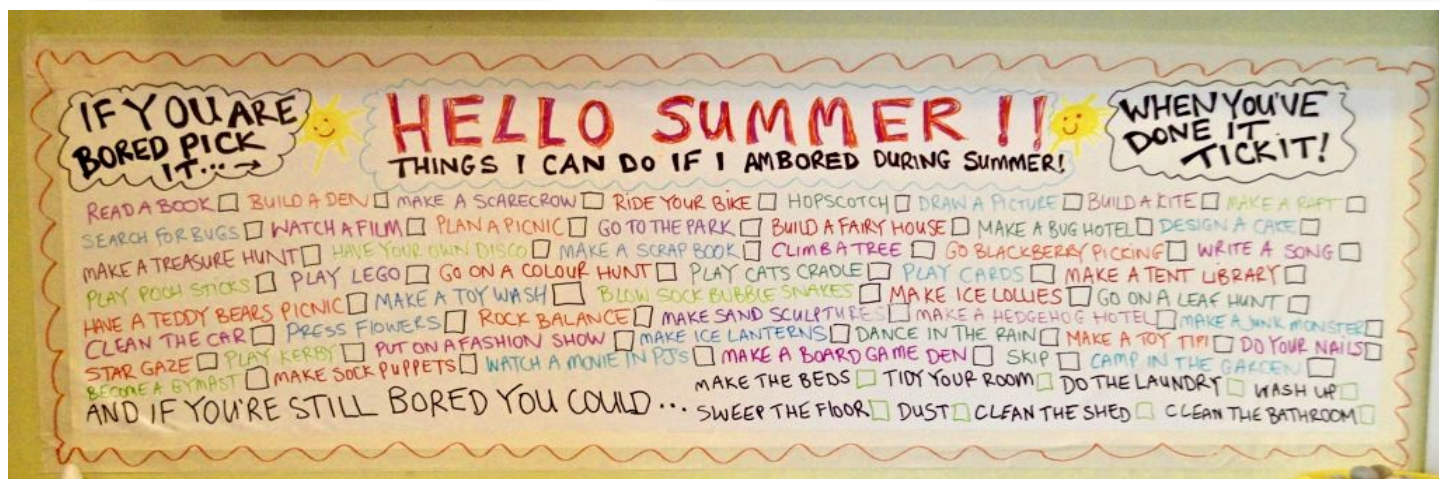 IF YOU ARE
BORED PICK
IT...→
HELLO SUMMER!!
THINGS I CAN DO IF I AM BORED DURING SUMMER!
WHEN YOU'VE
DONE IT
TICK IT!
READ A BOOK BUILD A DEN MAKE A SCARECROW RIDE YOUR BIKE HOPSCOTCH DRAW A PICTURE BUILD A KITE MAKE A RAFT
SEARCH FOR BUGS WATCH A FILM PLAN A PICNIC GO TO THE PARK BUILD A FAIRY HOUSE MAKE A BUG HOTEL DESIGN A CAKE
MAKE A TREASURE HUNT HAVE YOUR OWN DISCO MAKE A SCRAP BOOK CLIMB A TREE GO BLACKBERRY PICKING WRITE A SONG
PLAY POOH STICKS PLAY LEGO GO ON A COLOUR HUNT PLAY CATS CRADLE PLAY CARDS MAKE A TENT LIBRARY
HAVE A TEDDY BEARS PICNIC MAKE A TOY WASH BLOW SOCK BUBBLE SNAKES MAKE ICE LOLLIES GO ON A LEAF HUNT
CLEAN THE CAR PRESS FLOWERS ROCK BALANCE MAKE SAND SCULPTURES MAKE A HEDGEHOG HOTEL MAKE A JUNK MONSTER
STAR GAZE PLAY KERBY PUT ON A FASHION SHOW MAKE ICE LANTERNS DANCE IN THE RAIN MAKE A TOY TIPI DO YOUR NAILS
BECOME A GYMPAST MAKE SOCK PUPPETS WATCH A MOVIE IN PJ'S MAKE A BOARD GAME DEN SKIP CAMP IN THE GARDEN
AND IF YOU'RE STILL BORED YOU COULD...
MAKE THE BEDS TIDY YOUR ROOM DO THE LAUNDRY WASH UP
SWEEP THE FLOOR DUST CLEAN THE SHED CLEAN THE BATHROOM